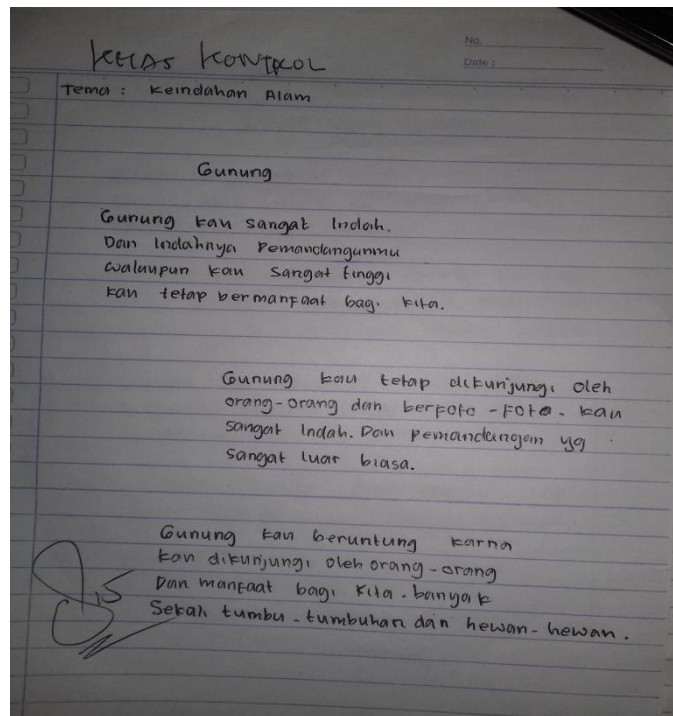 KELAS KONTROL
No.
Date :
Tema : Keindahan Alam
Gunung
Gunung kau sangat Indah.
Dan Indahnya Pemandanganmu
walaupun kau sangat tinggi
kau tetap bermanfaat bagi kita.
Gunung kau tetap dikunjungi oleh
orang-orang dan berfoto-foto. kau
sangat Indah. Dan pemandangan yg
sangat luar biasa.
Gunung kau beruntung karna
kau dikunjungi oleh orang-orang
Dan manfaat bagi kita. banyak
Sekali tumbu-tumbuhan dan hewan-hewan.